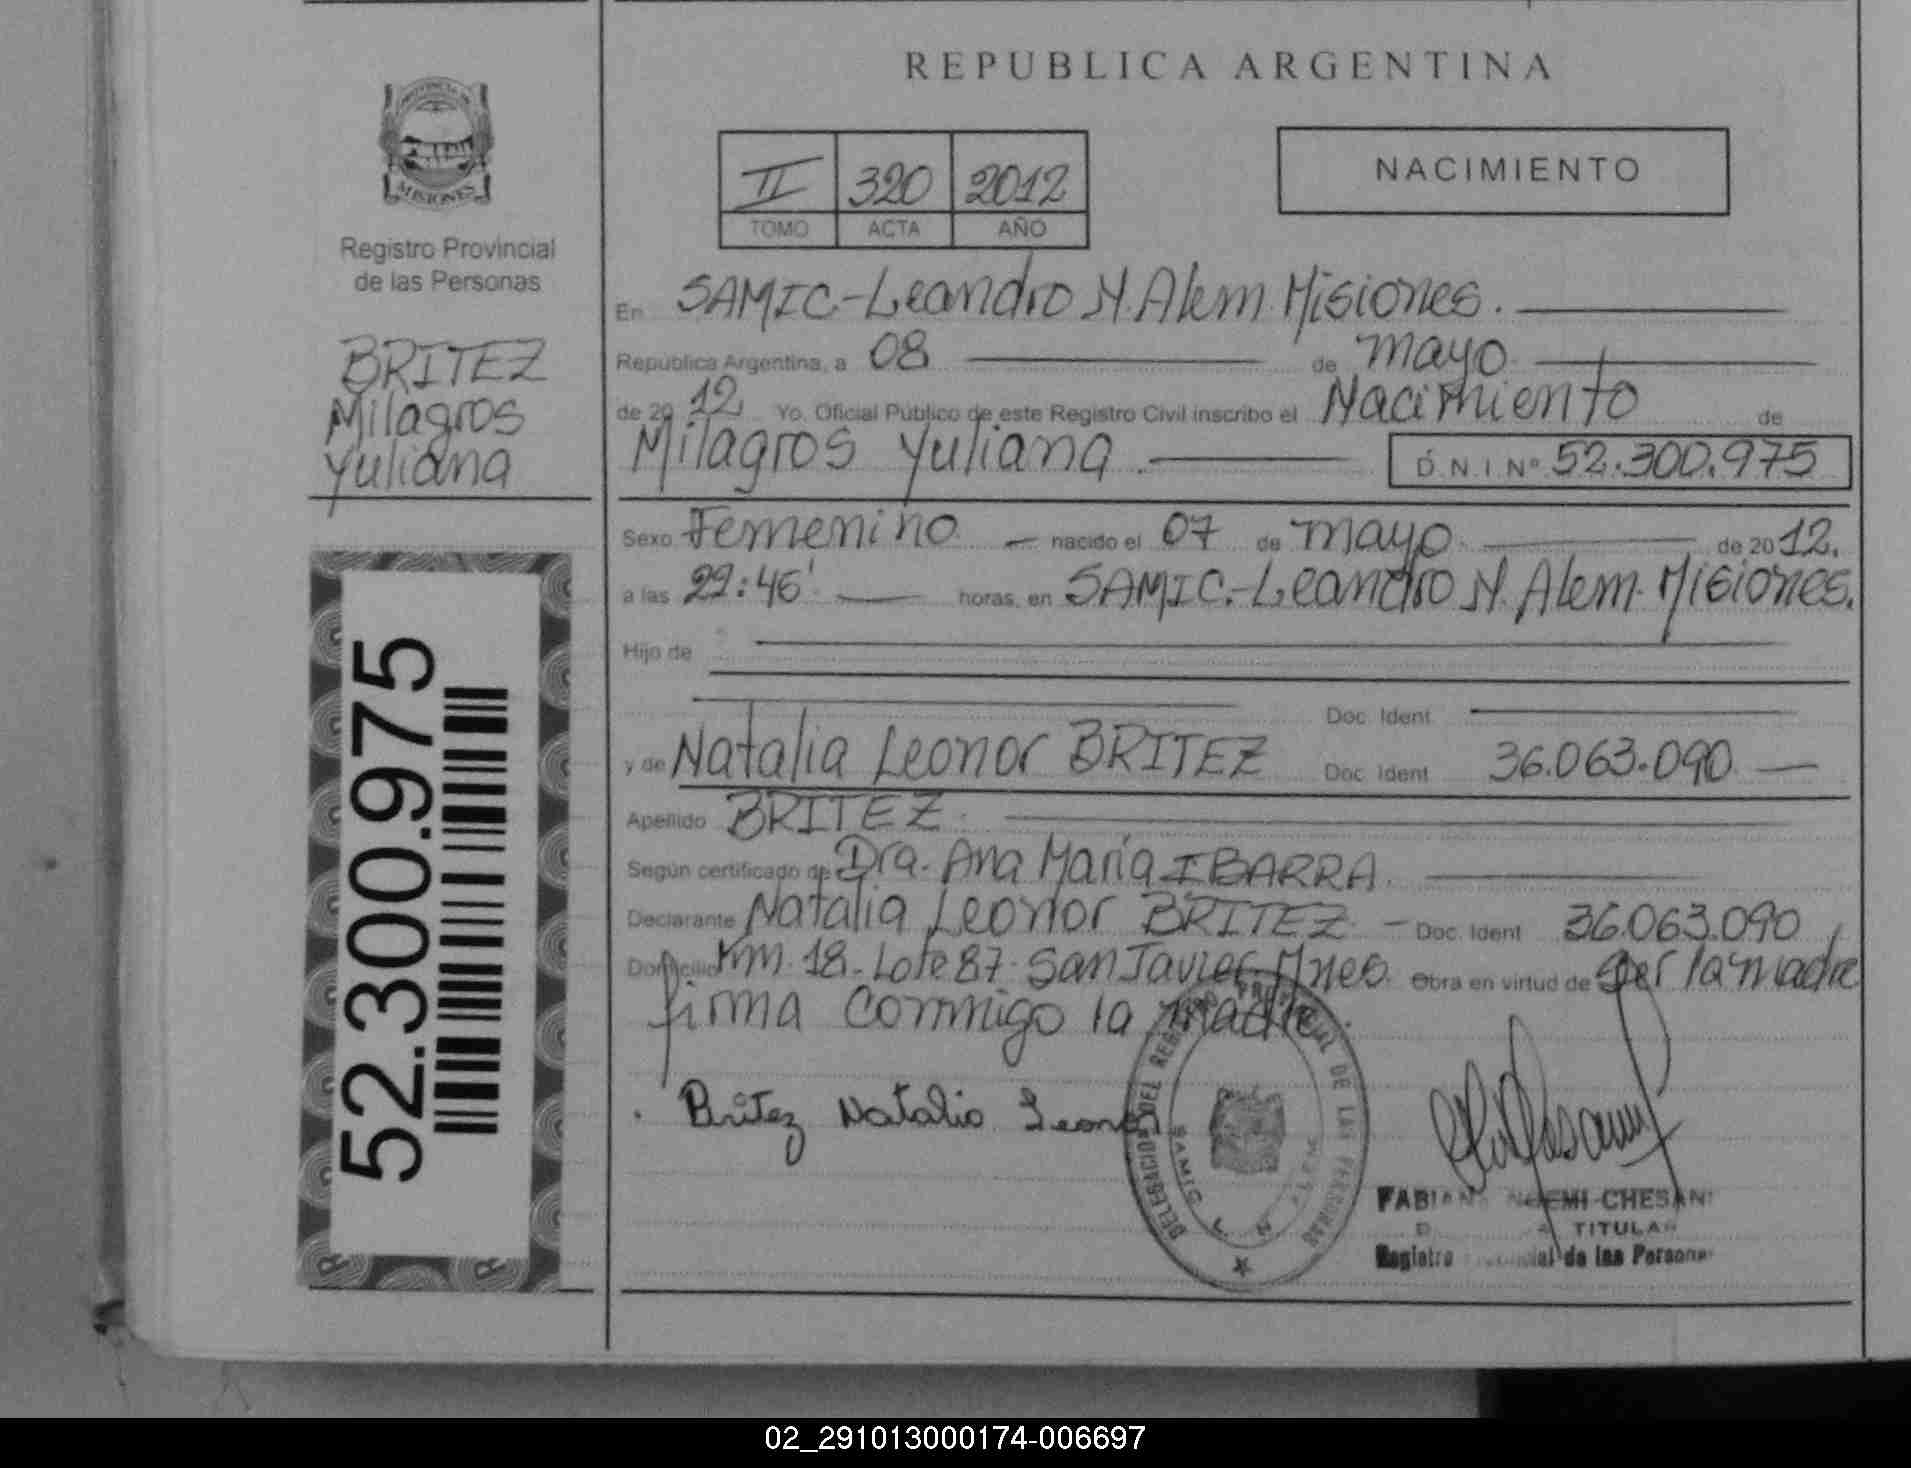 REPUBLICA ARGENTINA
PROVINCIA DE
MISIONES
Registro Provincial
de las Personas
BRITEZ
Milagros
Yuliana
52.300.975
II 320 2012
TOMO ACTA AÑO
NACIMIENTO
En SAMIC-Leandro N. Alem. Misiones.
República Argentina, a 08 de mayo
de 2012 Yo, Oficial Público de este Registro Civil inscribo el Nacimiento de
Milagros Yuliana. D.N.I.Nº 52.300.975
Sexo Femenino nacido el 07 de mayo de 2012.
a las 22:46' horas, en SAMIC.-Leandro N. Alem. Misiones.
Hijo de
Doc. Ident
y de Natalia Leonor BRITEZ Doc. Ident 36.063.090
Apellido BRITEZ.
Según certificado de Dra. Ana María IBARRA.
Declarante Natalia Leonor BRITEZ. - Doc. Ident 36.063.090
Domicilio Km. 18. Lote 87. San Javier. Mnes. Obra en virtud de ser la madre
firma conmigo la madre.
Britez Natalia Leonor
DELEGACION DEL REGISTRO PROVINCIAL DE LAS PERSONAS
SAMIC L. N. ALEM
FABIANA NOEMI CHESANI
TITULAR
Registro Provincial de las Personas
02_291013000174-006697